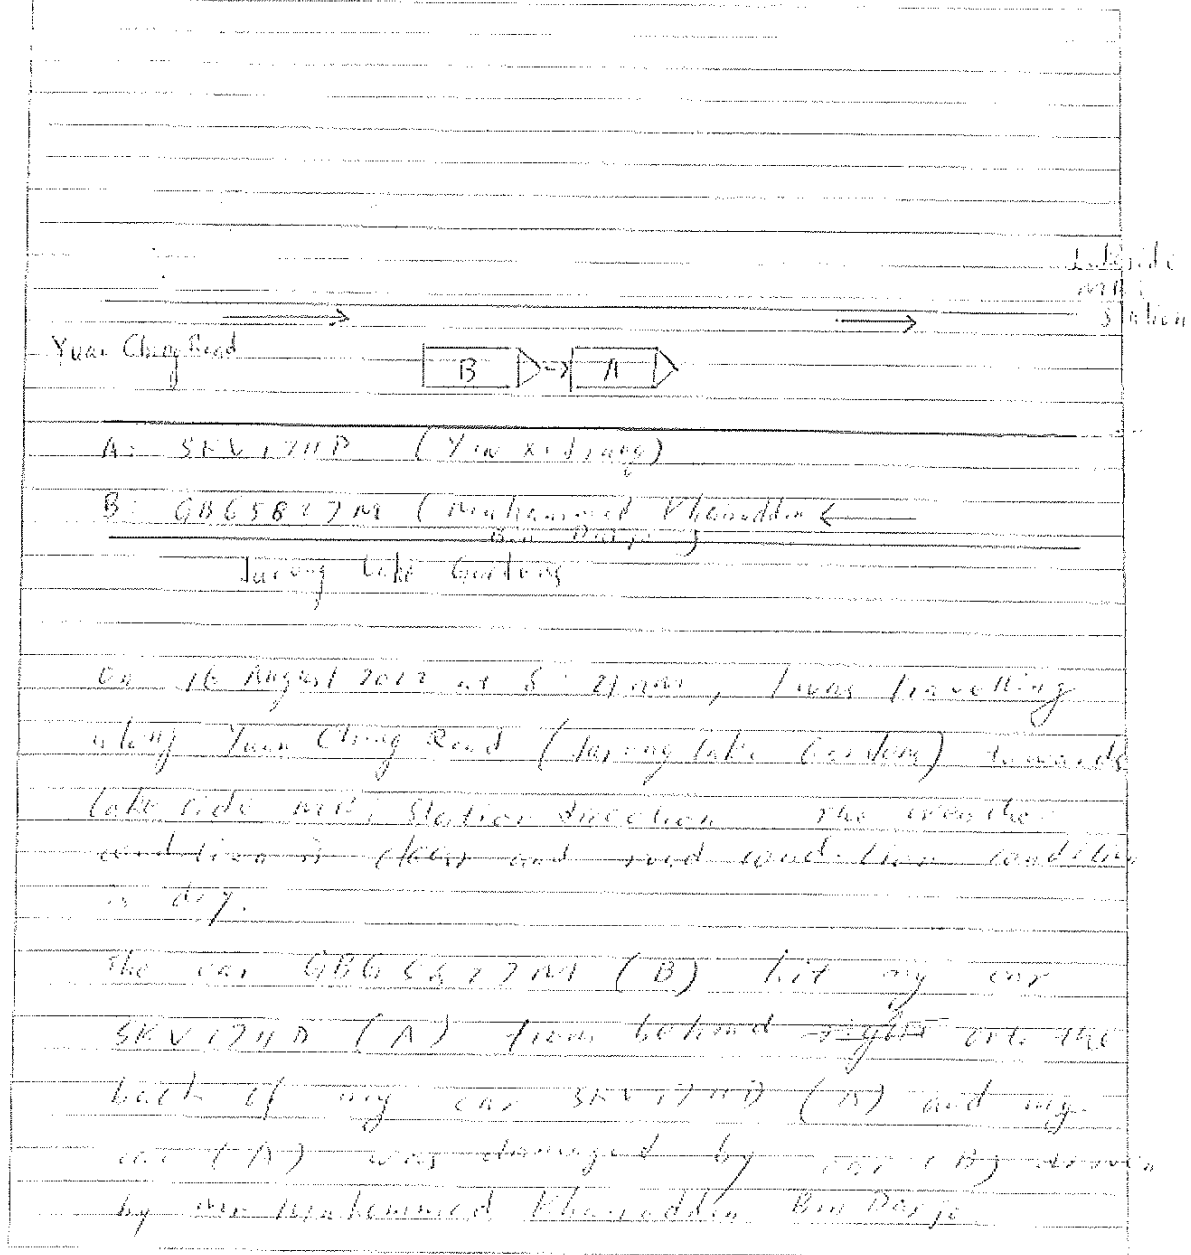 Lakeside
MRT
Station
Yuan Ching Road
B A
A: SKV17HD (Yin
B: GBG5827M (Muhammed Khairuddin
Bin
Jurong Lake Gardens
On 16 August at 8:21 AM, I was travelling
along Yuan Ching Road (Jurong Lake Gardens) towards
lake side MRT Station direction The weather
condition is clear and road condition condition
is dry.
The car GBG5827M (B) hit my car
SKV17HD (A) from behind right onto the
back of my car SKV17HD (A) and my
car (A) was damaged by car (B) driven
by Mr Muhammed Khairuddin Bin